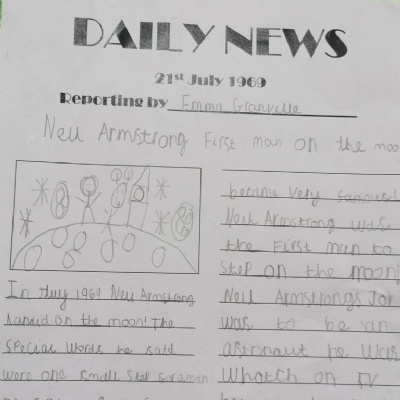 DAILY NEWS
21st July 1969
Reporting by Emma Granville
Neil Armstrong First man on the moo
In 1969 Neil Armstrong
landid on the moon! The
special words he said
were one small step foraman
became very
Neil Armstrong was
the First man to
Step on the moon!
Neil Armstrongs Jo
was to be an
astronaut he was
Whatch on TV